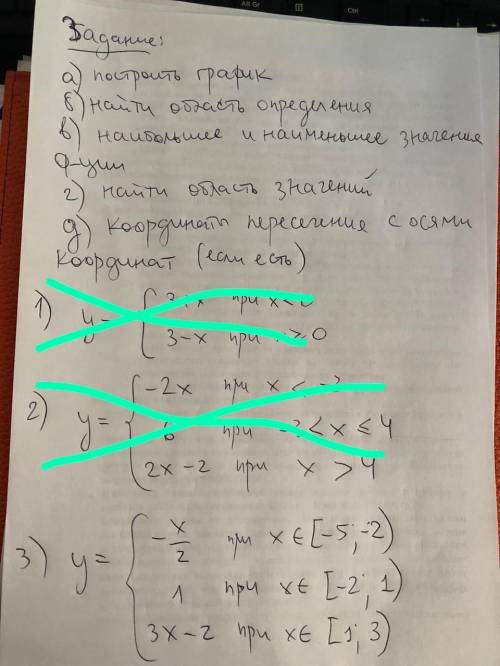 Alt Gr
Задание:
а) построить график
б) найти область определения
в) наибольшее и наименьшее значения
ф-ции
г) найти область значений
д) координаты пересечения с осями
координат (если есть)
1) y = { 3+x при x<0
3-x при x ≥ 0
2) y = { -2x при x <
6 при < x ≤ 4
2x-2 при x > 4
3) y = { -x/2 при x∈[-5;-2)
1 при x∈ [-2; 1)
3x-2 при x∈ [1; 3)